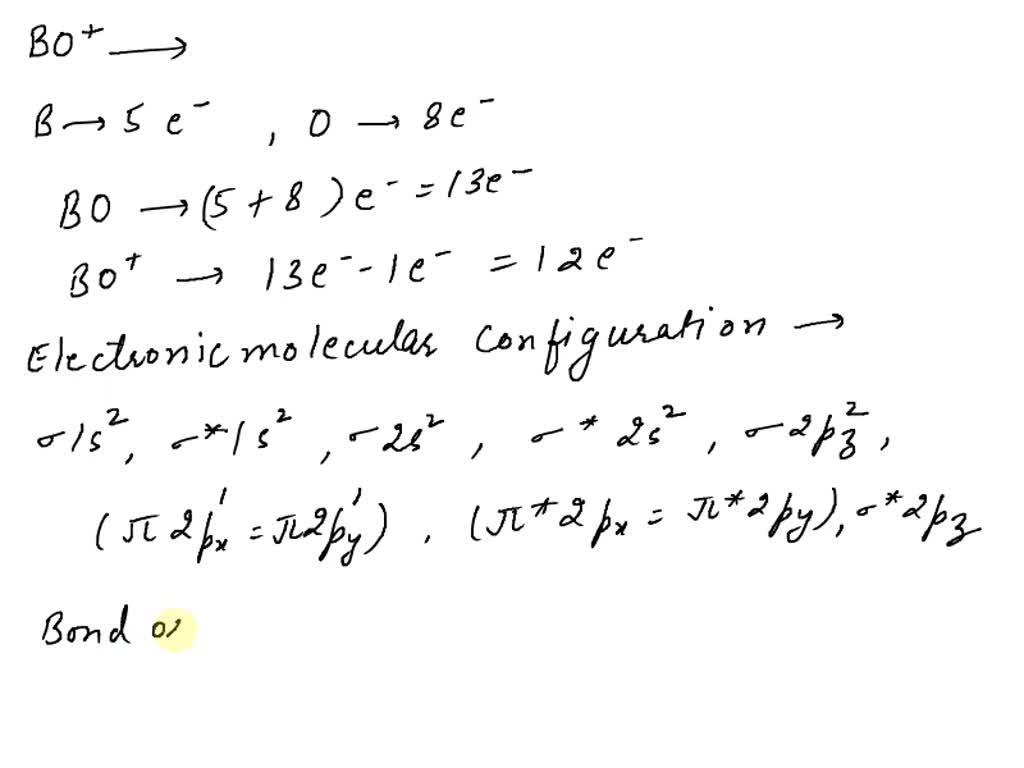 BO⁺ →
B → 5 e⁻ , O → 8e⁻
BO → (5 + 8) e⁻ = 13e⁻
BO⁺ → 13e⁻ - 1e⁻ = 12e⁻
Electronic molecular configuration →
σ1s², σ*1s², σ2s², σ*2s², σ2pz²,
(π2px¹ = π2py¹), (π*2px = π*2py), σ*2pz
Bond or